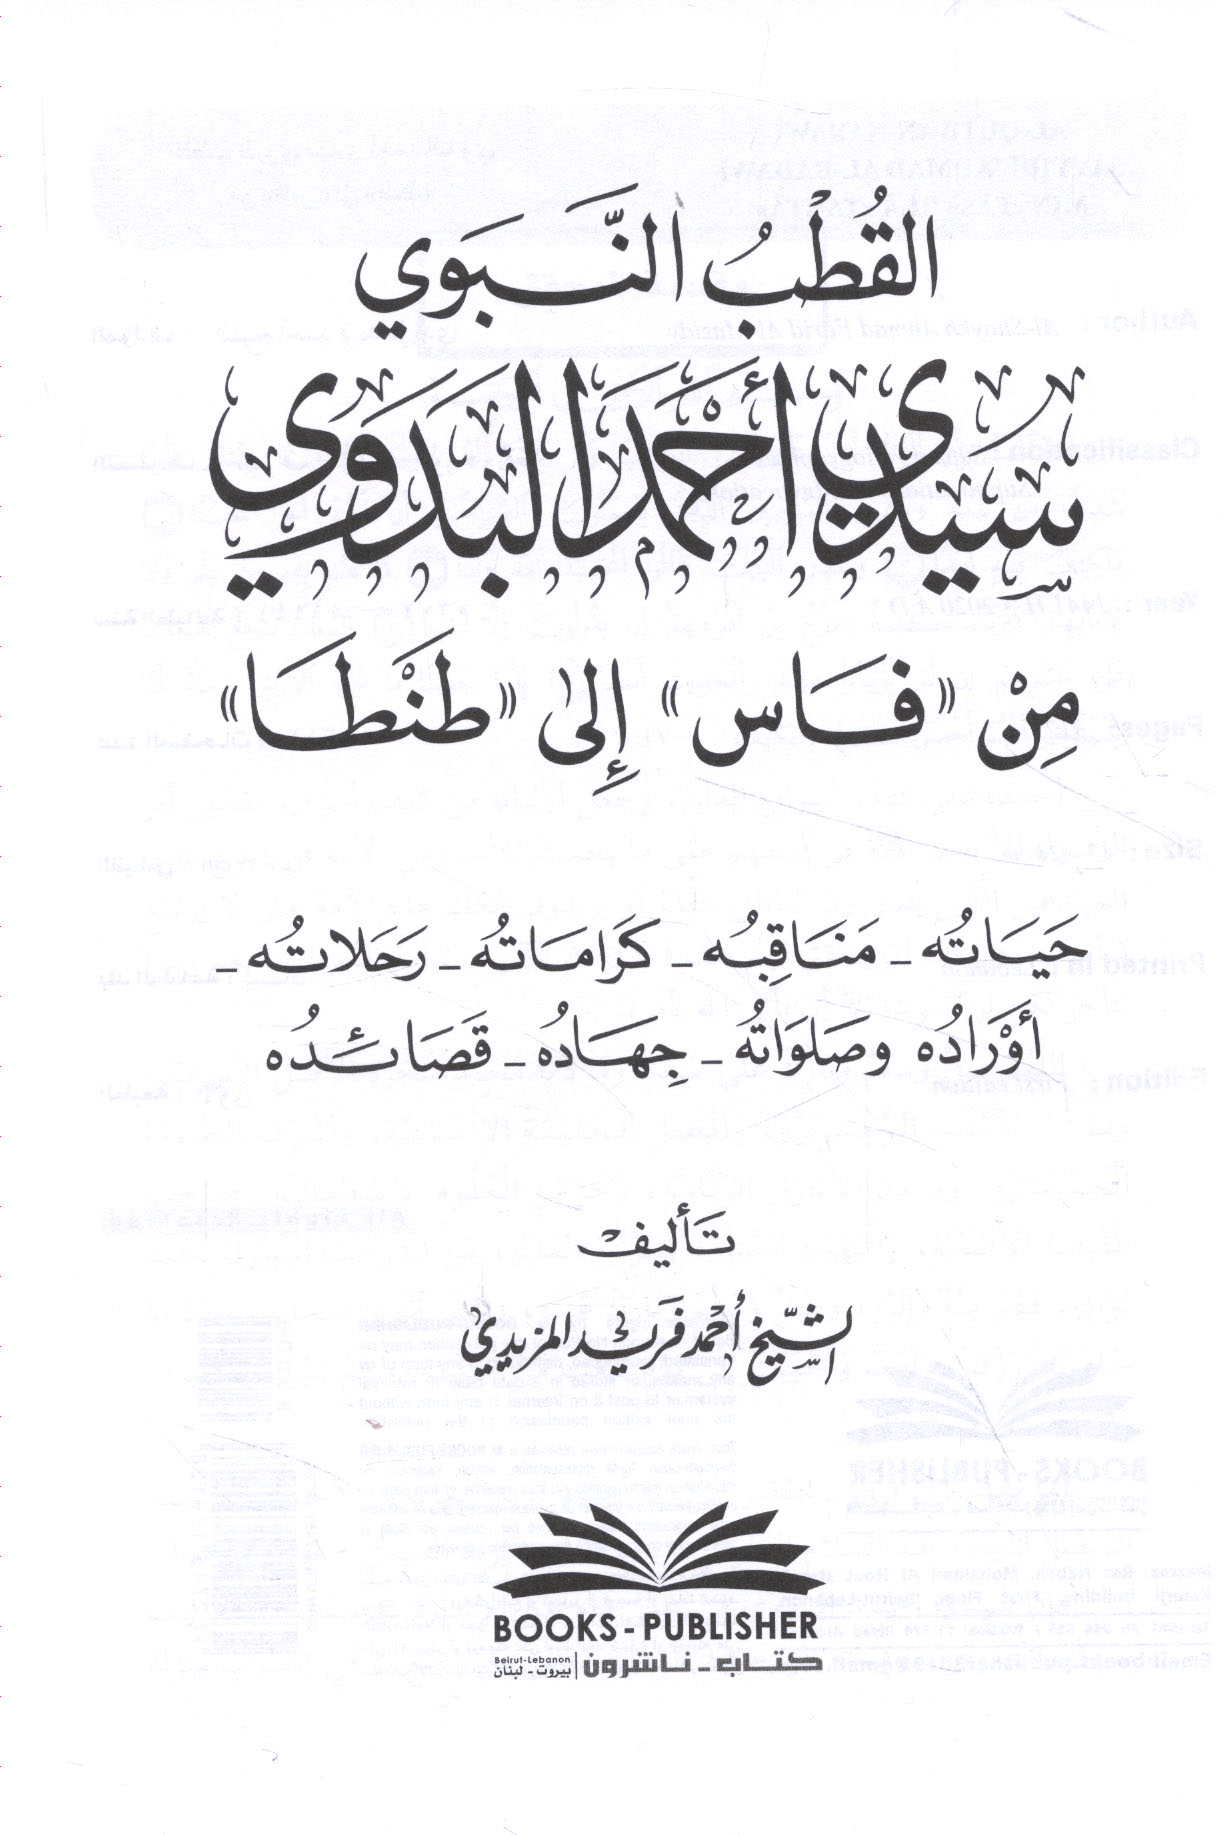 القُطْبُ النَّبَوي
سيّدي أحمَد البَدَوي
مِنْ «فَاس» إلى «طَنْطَا»
حَيَاتُه - مَنَاقِبُه - كَرَامَاتُه - رَحَلاتُه -
أوْرَادُه وصَلَوَاتُه - جِهَادُه - قَصَائدُه
تَأليف
الشّيخ أحمد فريد المزيدي
BOOKS - PUBLISHER
كتاب - ناشرون | بيروت - لبنان Beirut-Lebanon